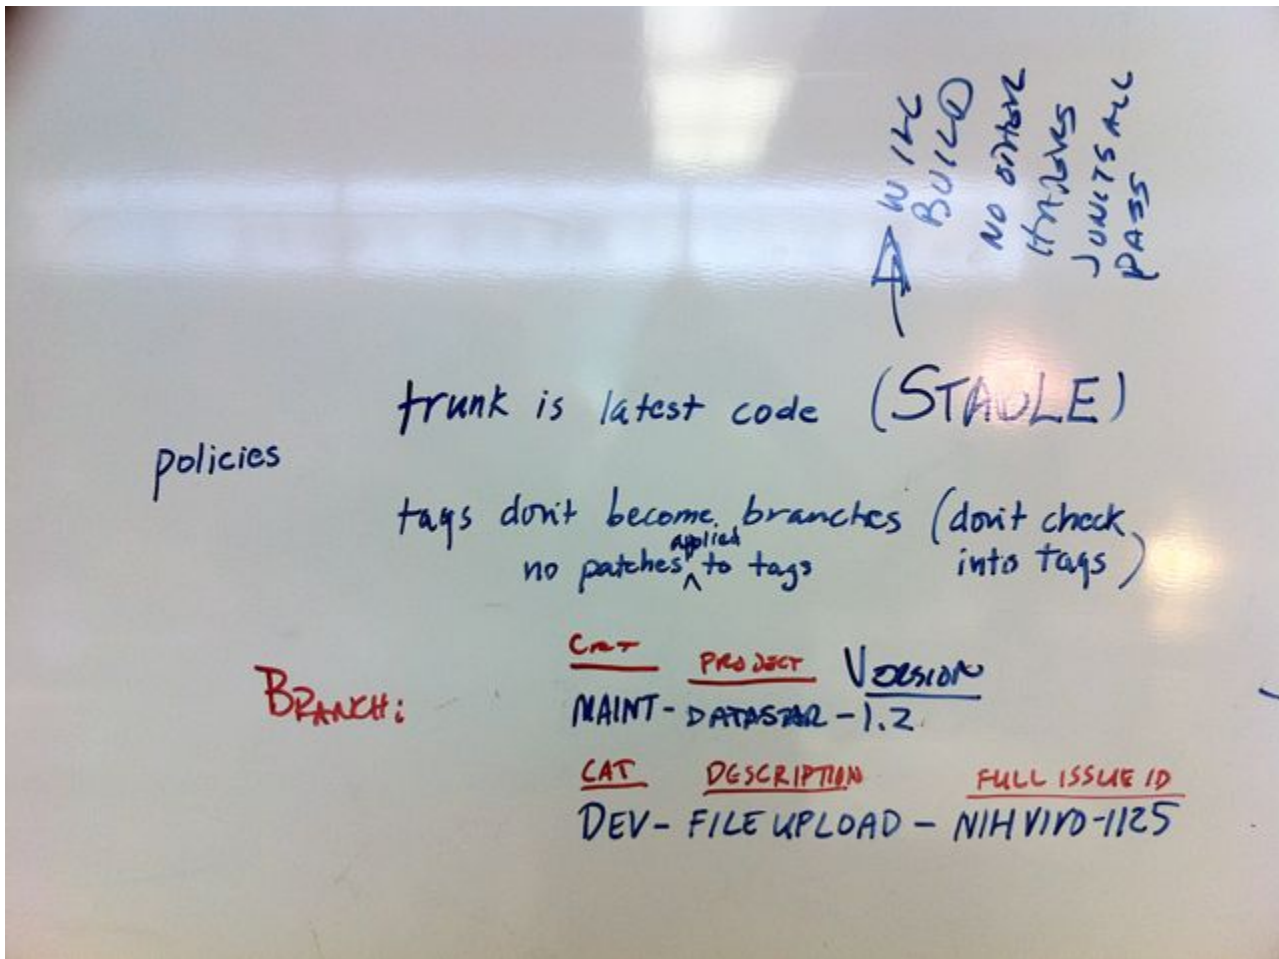 WILL
BUILD
NO
JUNITS ALL
PASS
trunk is latest code (STABLE)
policies
tags don't become branches (don't check
into tags)
no patches applied to tags
CAT PROJECT VERSION
BRANCH: MAINT-DATASTAR-1.2
CAT DESCRIPTION FULL ISSUE ID
DEV-FILE UPLOAD-NIHVIVO-1125